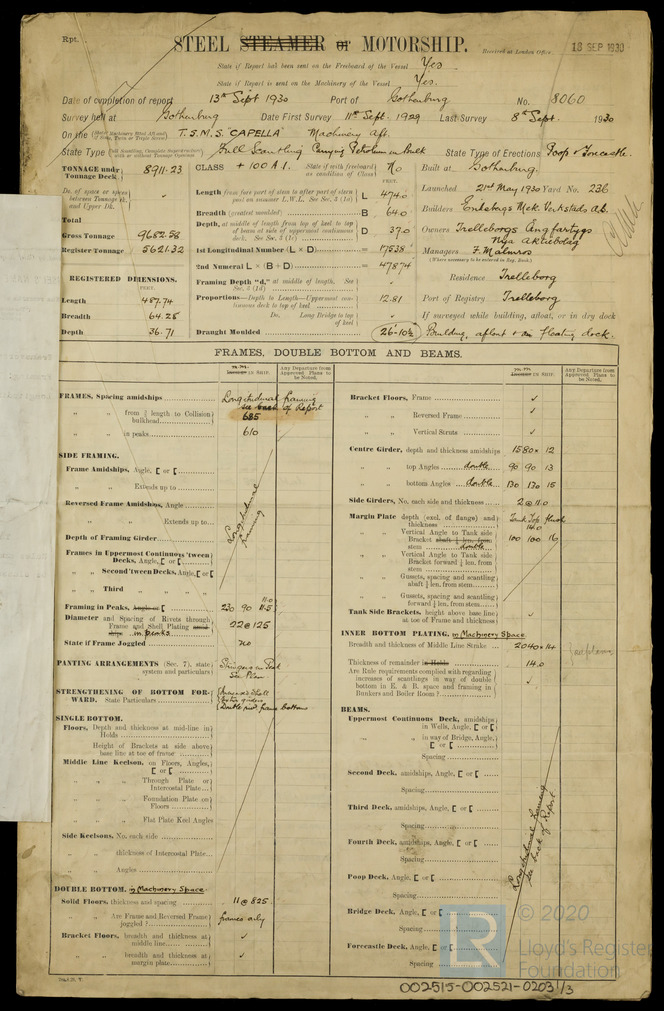 Rpt.
STEEL STEAMER or MOTORSHIP.
Received at London Office 18 SEP 1930
State if Report has been sent on the Freeboard of the Vessel Yes
State if Report is sent on the Machinery of the Vessel Yes.
Date of completion of report 13th Sept 1930 Port of Gothenburg No. 8060
Survey held at Gothenburg Date First Survey 11th Sept. 1929 Last Survey 8th Sept. 1930
On the T.S.M.S. "CAPELLA" Machinery Aft.
State Type Full Scantling Carrying Petroleum in Bulk State Type of Erections Poop & Forecastle.
TONNAGE under Tonnage Deck 8911.23
Do. of space or spaces between Tonnage Dk. and Upper Dk.
Total
Gross Tonnage 9682.58
Register Tonnage 5621.32
REGISTERED DIMENSIONS.
FEET.
Length 487.74
Breadth 64.25
Depth 36.71
CLASS +100 A1. State if with freeboard as condition of Class No
FEET.
Length from fore part of stem to after part of stern post on summer L.W.L. See Sec. 3 (1a) L 474.0
Breadth (greatest moulded) B 64.0
Depth, at middle of length from top of keel to top of beam at side of uppermost continuous deck. See Sec. 3 (1c) D 37.0
1st Longitudinal Number (L × D) = 17538
2nd Numeral L × (B + D) = 47874
Framing Depth "d," at middle of length. See Sec. 3 (1d)
Proportions—Depth to Length—Uppermost continuous deck to top of keel 12.81
Do. Long Bridge to top of keel
Draught Moulded 26'-10½
Built at Gothenburg.
Launched 21st May 1930 Yard No. 236
Builders Eriksbergs Mek. Verkstads A.B.
Owners Trelleborgs Ångfartygs
Nya Aktiebolag
Managers F. Malmros
(Where necessary to be entered in Reg. Book)
Residence Trelleborg
Port of Registry Trelleborg
If surveyed while building, afloat, or in dry dock
Building, afloat & in floating dock.
FRAMES, DOUBLE BOTTOM AND BEAMS.
IN SHIP.
Any Departure from Approved Plans to be Noted.
FRAMES, Spacing amidships Longitudinal framing
see back of Report
" " from ⅗ length to Collision bulkhead 685
" " in peaks 610
SIDE FRAMING.
Frame Amidships, Angle, [ or [
" " Extends up to
Reversed Frame Amidships, Angle
" " Extends up to
Depth of Framing Girder
Longitudinal framing
Frames in Uppermost Continuous 'tween Decks, Angle, [ or [
" " Second 'Tween Decks, Angle, [ or [
" " Third "
Framing in Peaks, Angle or [ 230 90 11.0 11.5
Diameter and Spacing of Rivets through Frame and Shell Plating in peaks 22 @ 125
State if Frame Joggled no
PANTING ARRANGEMENTS (Sec. 7), state system and particulars Stringers in Peak
STRENGTHENING OF BOTTOM FORWARD. State Particulars
Double riv. frame bottoms
SINGLE BOTTOM.
Floors, Depth and thickness at mid-line in Holds
Height of Brackets at side above base line at toe of frame
Middle Line Keelson, on Floors, Angles, [ or [
" " Through Plate or Intercostal Plate
" " Foundation Plate on Floors
" " Flat Plate Keel Angles
Side Keelsons, No. each side
" " thickness of Intercostal Plate
" " Angles
DOUBLE BOTTOM. in Machinery Space.
Solid Floors, thickness and spacing 11 @ 825.
" " Are Frame and Reversed Frame joggled? frames only
Bracket Floors, breadth and thickness at middle line
" " breadth and thickness at margin plate
IN SHIP.
Any Departure from Approved Plans to be Noted.
Bracket Floors, Frame
" " Reversed Frame
" " Vertical Struts
Centre Girder, depth and thickness amidships 1580 × 12
" " top Angles double 90 90 13
" " bottom Angles double 130 130 15
Side Girders, No. each side and thickness 2 @ 11.0
Margin Plate depth (excl. of flange) and thickness Tank Top flush 14.0
" " Vertical Angle to Tank side Bracket double 100 100 16
" " Vertical Angle to Tank side Bracket forward ¼ len. from stem
" " Gussets, spacing and scantling abaft ¼ len. from stem
" " Gussets, spacing and scantling forward ¼ len. from stem
Tank Side Brackets, height above base line at toe of Frame and thickness
INNER BOTTOM PLATING. in Machinery Space
Breadth and thickness of Middle Line Strake 2040 × 14
Thickness of remainder in Holds 14.0
Are Rule requirements complied with regarding increases of scantlings in way of double bottom in E. & B. space and framing in Bunkers and Boiler Room?
BEAMS.
Uppermost Continuous Deck, amidships in Wells, Angle, [ or [
" " in way of Bridge, Angle, [ or [
Spacing
Second Deck, amidships, Angle, [ or [
Spacing
Third Deck, amidships, Angle, [ or [
Spacing
Fourth Deck, amidships, Angle, [ or [
Spacing
Poop Deck, Angle, [ or [
Spacing
Bridge Deck, Angle, [ or [
Spacing
Forecastle Deck, Angle, [ or [
Spacing
Longitudinal framing
see back of Report
LR
© 2020
Lloyd's Register
Foundation
002515-002521-0203 1/3